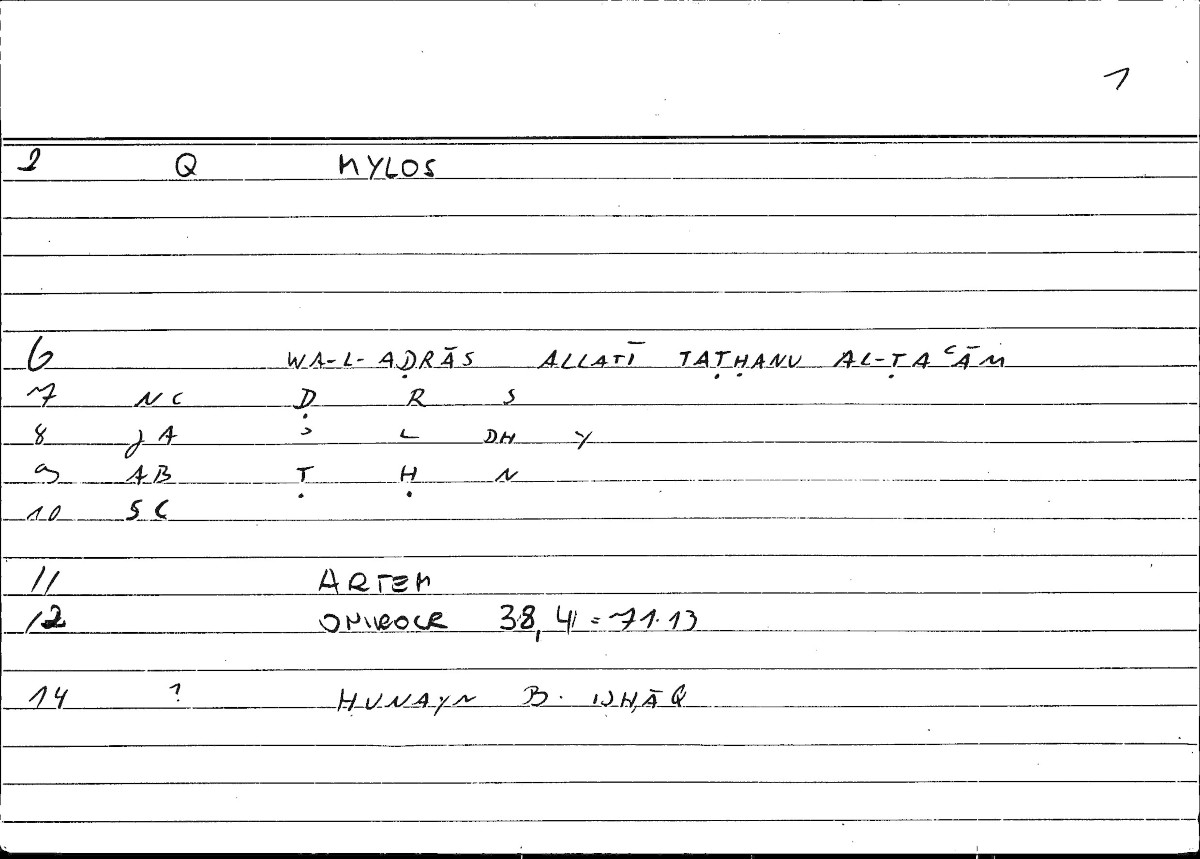 1
2 Q MYLOS
6 WA-L-AḌRĀS ALLATĪ TAṬḤANU AL-ṬAʿĀM
7 NC Ḍ R S
8 JA ʾ L DH Y
9 AB Ṭ Ḥ N
10 SC
11 ARTEM
12 ONIROCR 38,4 = 71.13
14 ? ḤUNAYN B. ISḤĀQ